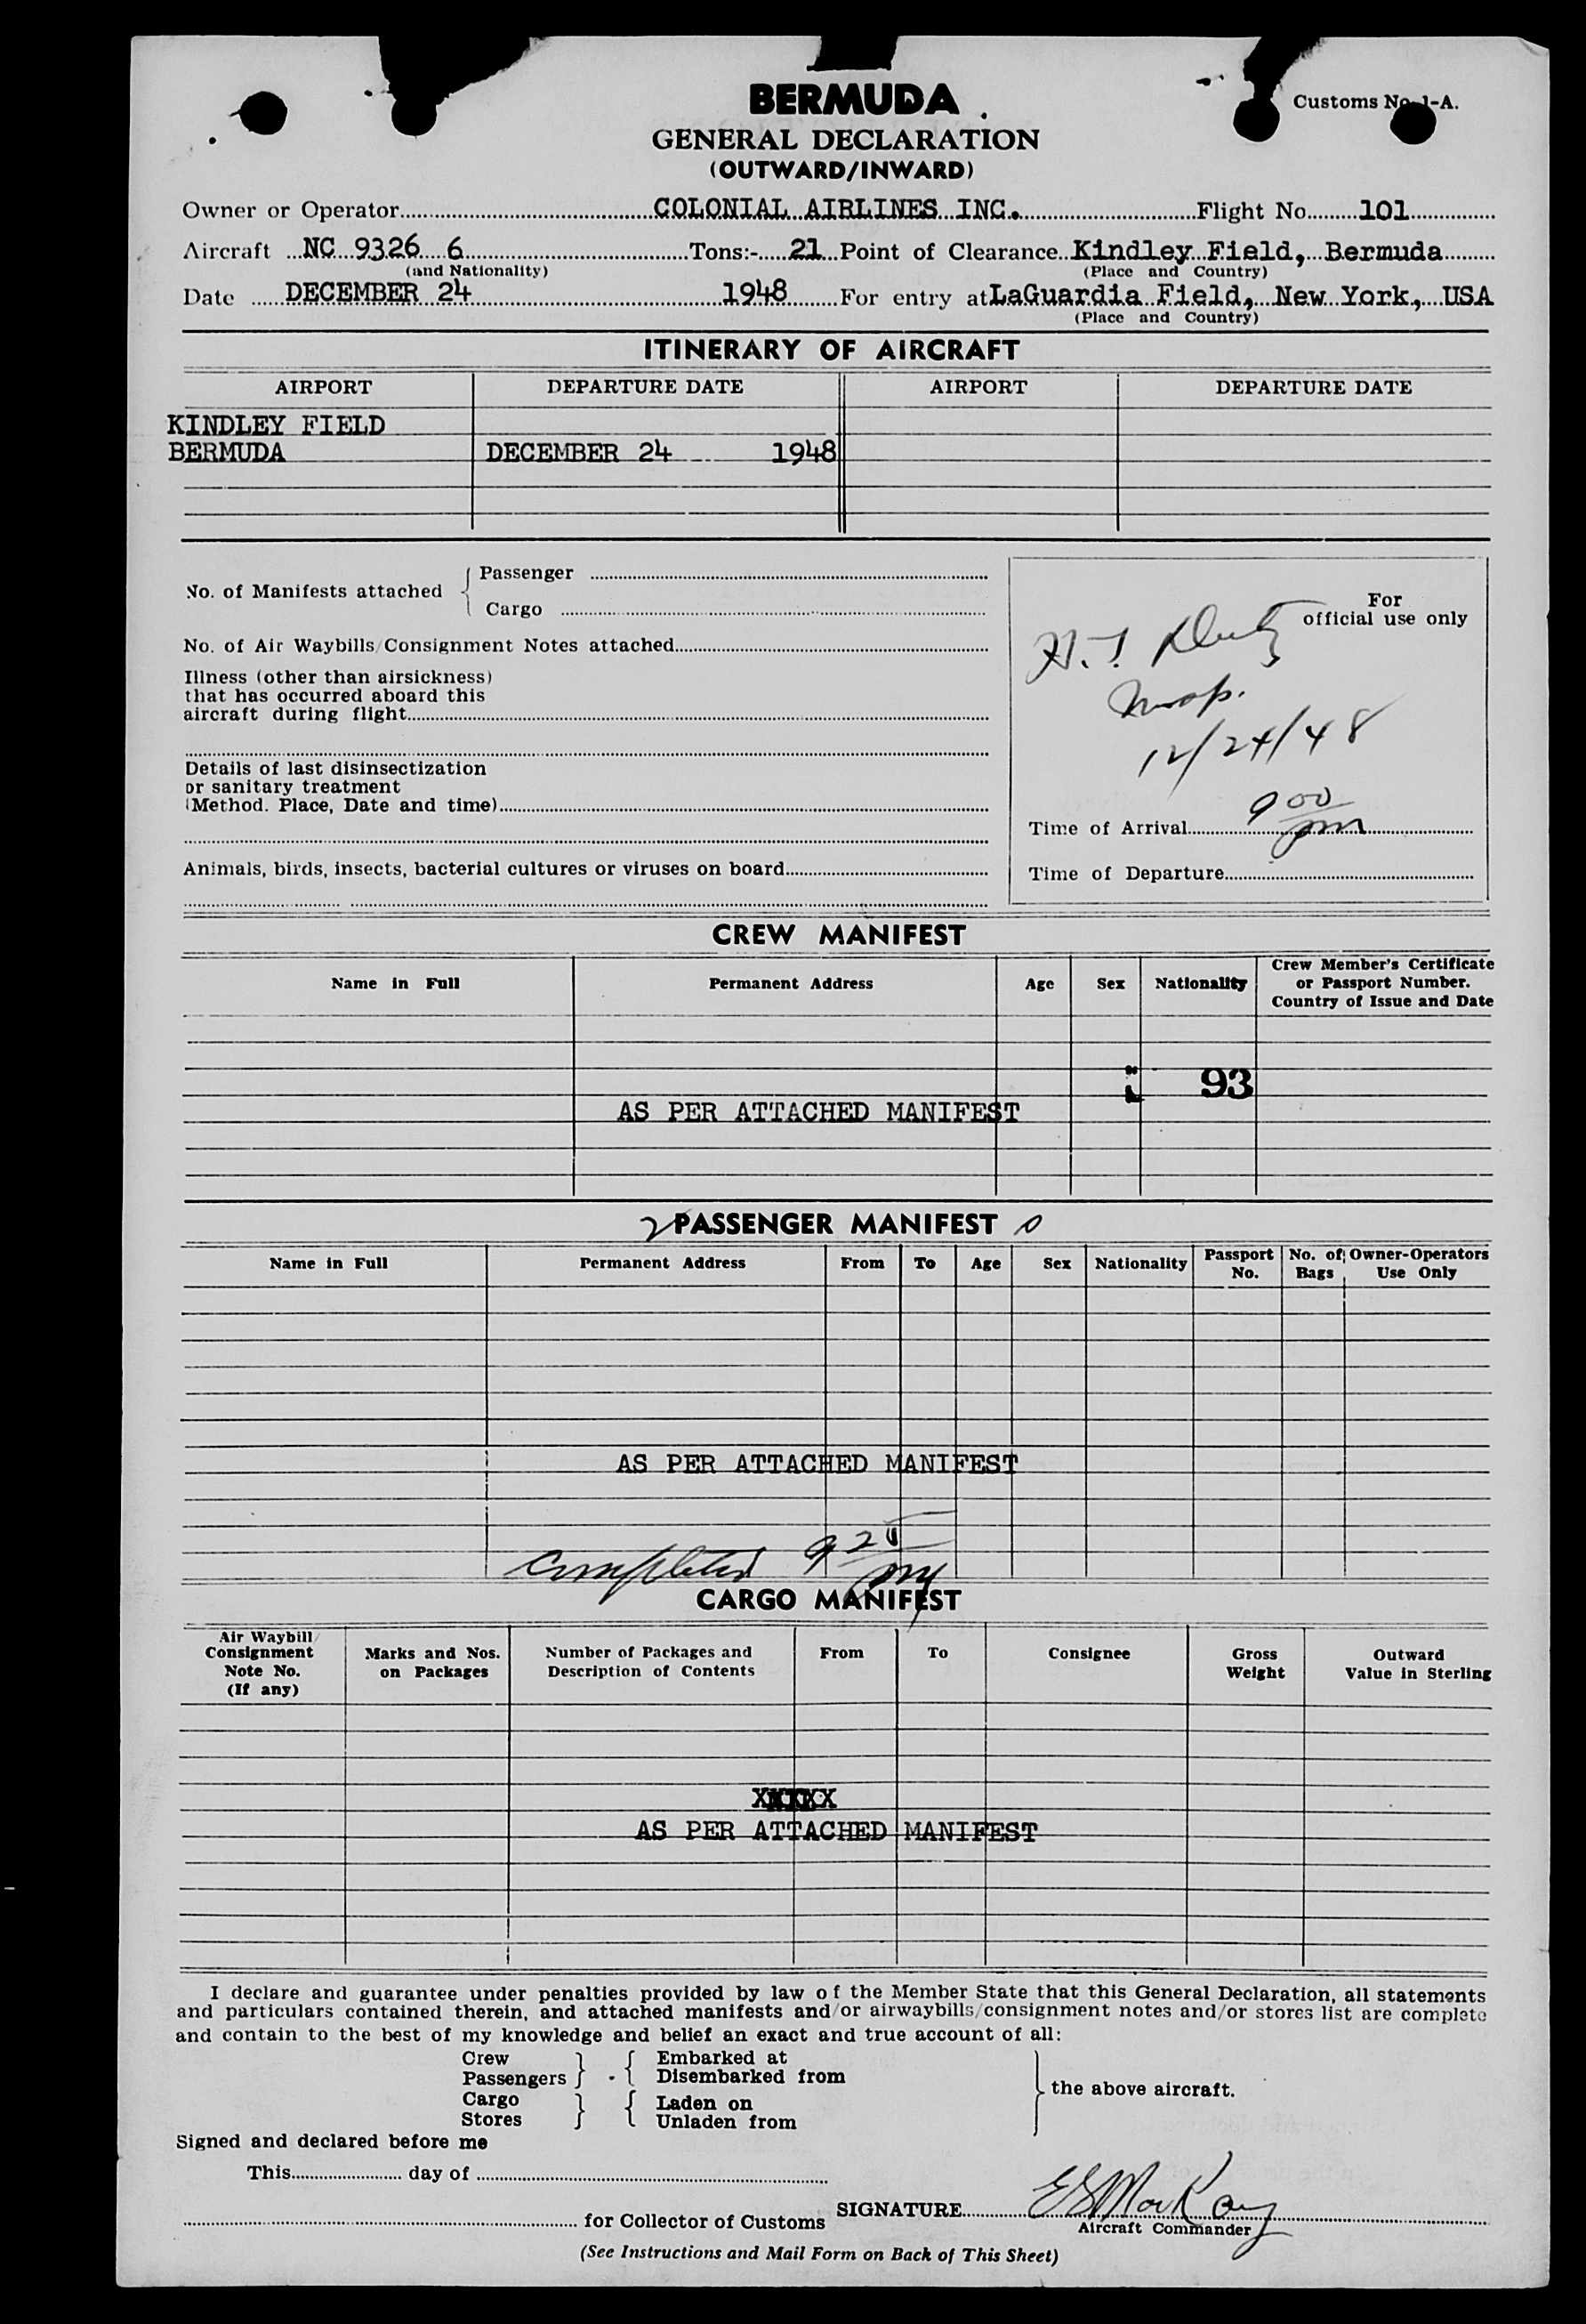 BERMUDA
Customs No. 1-A.
GENERAL DECLARATION
(OUTWARD/INWARD)
Owner or Operator COLONIAL AIRLINES INC. Flight No. 101
Aircraft NC 9326 6 Tons:- 21 Point of Clearance Kindley Field, Bermuda
(and Nationality) (Place and Country)
Date DECEMBER 24 1948 For entry at LaGuardia Field, New York, USA
(Place and Country)
ITINERARY OF AIRCRAFT
AIRPORT DEPARTURE DATE AIRPORT DEPARTURE DATE
KINDLEY FIELD
BERMUDA DECEMBER 24 1948
No. of Manifests attached
Passenger
Cargo
No. of Air Waybills/Consignment Notes attached
Illness (other than airsickness)
that has occurred aboard this
aircraft during flight
Details of last disinsectization
or sanitary treatment
(Method. Place, Date and time)
Animals, birds, insects, bacterial cultures or viruses on board
For
official use only
12/24/48
Time of Arrival 9 00 pm
Time of Departure
CREW MANIFEST
Name in Full Permanent Address Age Sex Nationality Crew Member's Certificate
or Passport Number.
Country of Issue and Date
93
AS PER ATTACHED MANIFEST
2 PASSENGER MANIFEST 0
Name in Full Permanent Address From To Age Sex Nationality Passport No. No. of Bags Owner-Operators Use Only
AS PER ATTACHED MANIFEST
Completed 9 20 pm
CARGO MANIFEST
Air Waybill/
Consignment
Note No.
(If any)
Marks and Nos.
on Packages
Number of Packages and
Description of Contents
From
To
Consignee
Gross
Weight
Outward
Value in Sterling
AS PER ATTACHED MANIFEST
I declare and guarantee under penalties provided by law of the Member State that this General Declaration, all statements
and particulars contained therein, and attached manifests and/or airwaybills/consignment notes and/or stores list are complete
and contain to the best of my knowledge and belief an exact and true account of all:
Crew Embarked at
Passengers Disembarked from
the above aircraft.
Cargo Laden on
Stores Unladen from
Signed and declared before me
This day of
for Collector of Customs
SIGNATURE E S MacKay
Aircraft Commander
(See Instructions and Mail Form on Back of This Sheet)